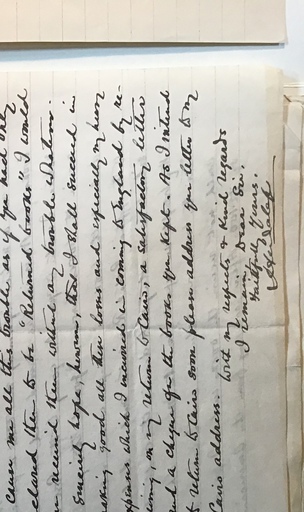 cause me all this trouble as if you had only
clared them to be "Returned books" I would
received them without any trouble whatever.
Sincerely hope, however, that I shall succeed in
making good all these losses and especially my heavy
expenses which I incurred in coming to England by re-
iving, on my return to Cairo, a satisfactory letter
and a cheque for the books you kept. As I intend
to return to Cairo soon please address your letter to my
Cairo address.
With my respects & kind regards
I remain, Dear Sir.
Faithfully Yours.